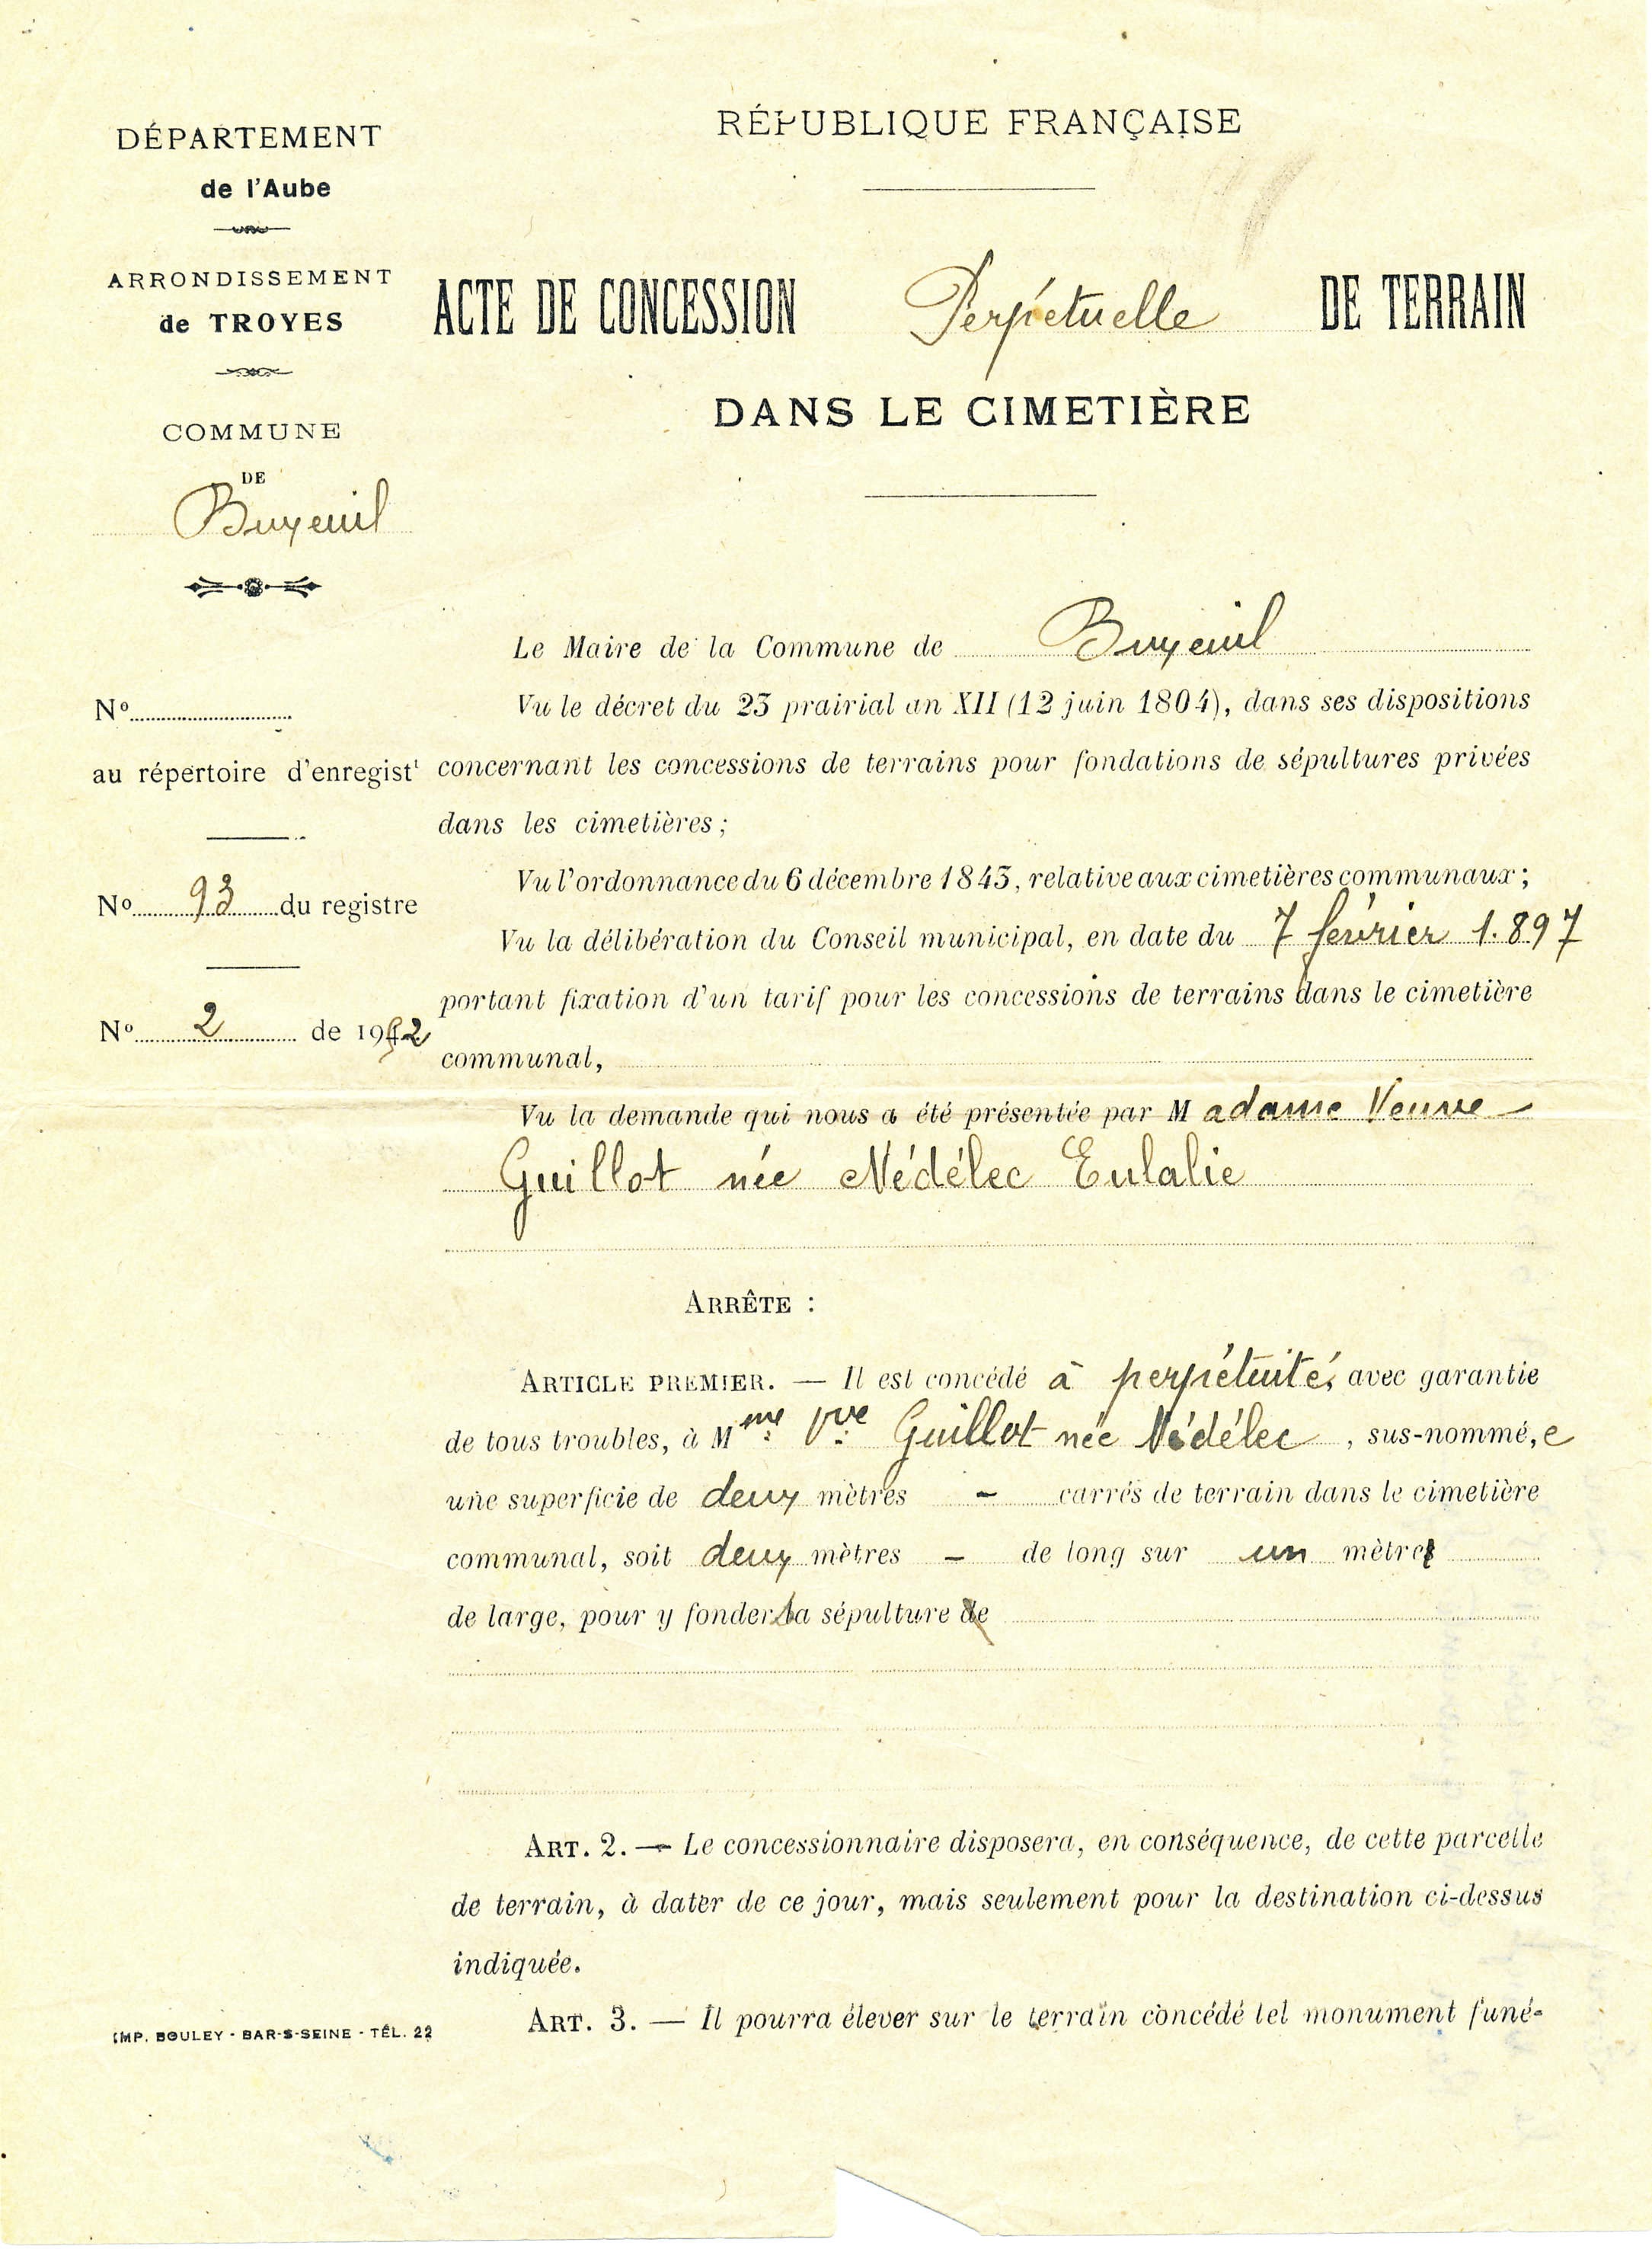 RÉPUBLIQUE FRANÇAISE
DÉPARTEMENT
de l'Aube
ARRONDISSEMENT
de TROYES
COMMUNE
DE
Buxeuil
ACTE DE CONCESSION Perpétuelle DE TERRAIN
DANS LE CIMETIÈRE
N°
au répertoire d'enregist^t
N° 93 du registre
N° 2 de 1942
Le Maire de la Commune de Buxeuil
Vu le décret du 23 prairial an XII (12 juin 1804), dans ses dispositions
concernant les concessions de terrains pour fondations de sépultures privées
dans les cimetières ;
Vu l'ordonnance du 6 décembre 1843, relative aux cimetières communaux ;
Vu la délibération du Conseil municipal, en date du 7 février 1.897
portant fixation d'un tarif pour les concessions de terrains dans le cimetière
communal,
Vu la demande qui nous a été présentée par Madame Veuve
Guillot née Nédélec Eulalie
ARRÊTE :
ARTICLE PREMIER. — Il est concédé à perpétuité, avec garantie
de tous troubles, à Mme Vve Guillot née Nédélec, sus-nommé,e
une superficie de deux mètres - carrés de terrain dans le cimetière
communal, soit deux mètres - de long sur un mètre
de large, pour y fonder sa sépulture de
ART. 2. — Le concessionnaire disposera, en conséquence, de cette parcelle
de terrain, à dater de ce jour, mais seulement pour la destination ci-dessus
indiquée.
ART. 3. — Il pourra élever sur le terrain concédé tel monument funé-
IMP. BOULEY - BAR-S-SEINE - TÉL. 22